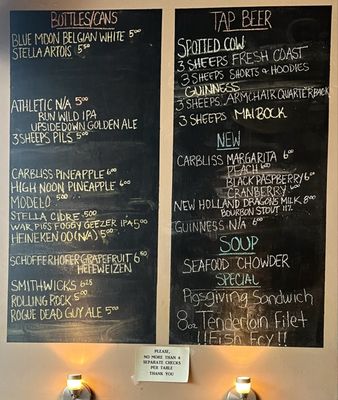 BOTTLES/CANS
BLUE MOON BELGIAN WHITE 5.00
STELLA ARTOIS 5.50
ATHLETIC N/A 5.00
RUN WILD IPA
UPSIDEDOWN GOLDEN ALE
3 SHEEPS PILS 5.00
CARBLISS PINEAPPLE 6.00
HIGH NOON PINEAPPLE 6.00
MODELO 5.00
STELLA CIDRE 5.00
WAR PIGS FOGGY GEEZER IPA 5.00
HEINEKEN 00 (N/A) 5.00
SCHOFFERHOFER GRAPEFRUIT 6.00
HEFEWEIZEN
SMITHWICKS 6.25
ROLLING ROCK 5.00
ROGUE DEAD GUY ALE 5.00
TAP BEER
SPOTTED COW
3 SHEEPS FRESH COAST
3 SHEEPS SHORTS & HOODIES
GUINNESS
3 SHEEPS ARMCHAIR QUARTERBACK
3 SHEEPS MAIBOCK
NEW
CARBLISS MARGARITA 6.00
PEACH 6.00
BLACK RASPBERRY 6.00
CRANBERRY 6.00
NEW HOLLAND DRAGONS MILK 8.00
BOURBON STOUT 11%
GUINNESS N/A 6.00
SOUP
SEAFOOD CHOWDER
SPECIAL
Pigsgiving Sandwich
8oz Tenderloin Filet
!!Fish Fry!!
PLEASE,
NO MORE THAN 4
SEPARATE CHECKS
PER TABLE
THANK YOU